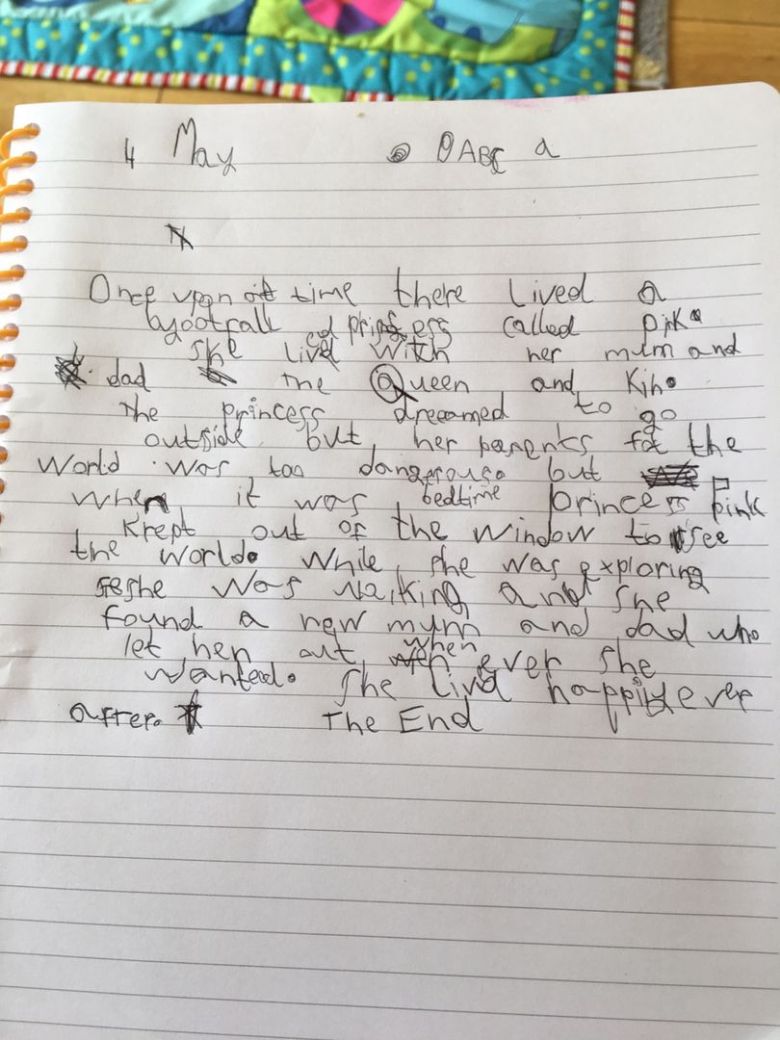 4 May OABC a
Once upon a time there lived a
byootfall princess called pink
she livd with her mum and
dad the Queen and King
The princess dreeamed to go
outside but her parents fot the
world was too dangerouse but
when it was bedtime princess pink
krept out of the window to see
the world. While she was exploring
she was walking and she
found a new mum and dad who
let her out when ever she
wanted. She livd happily ever
after. The End